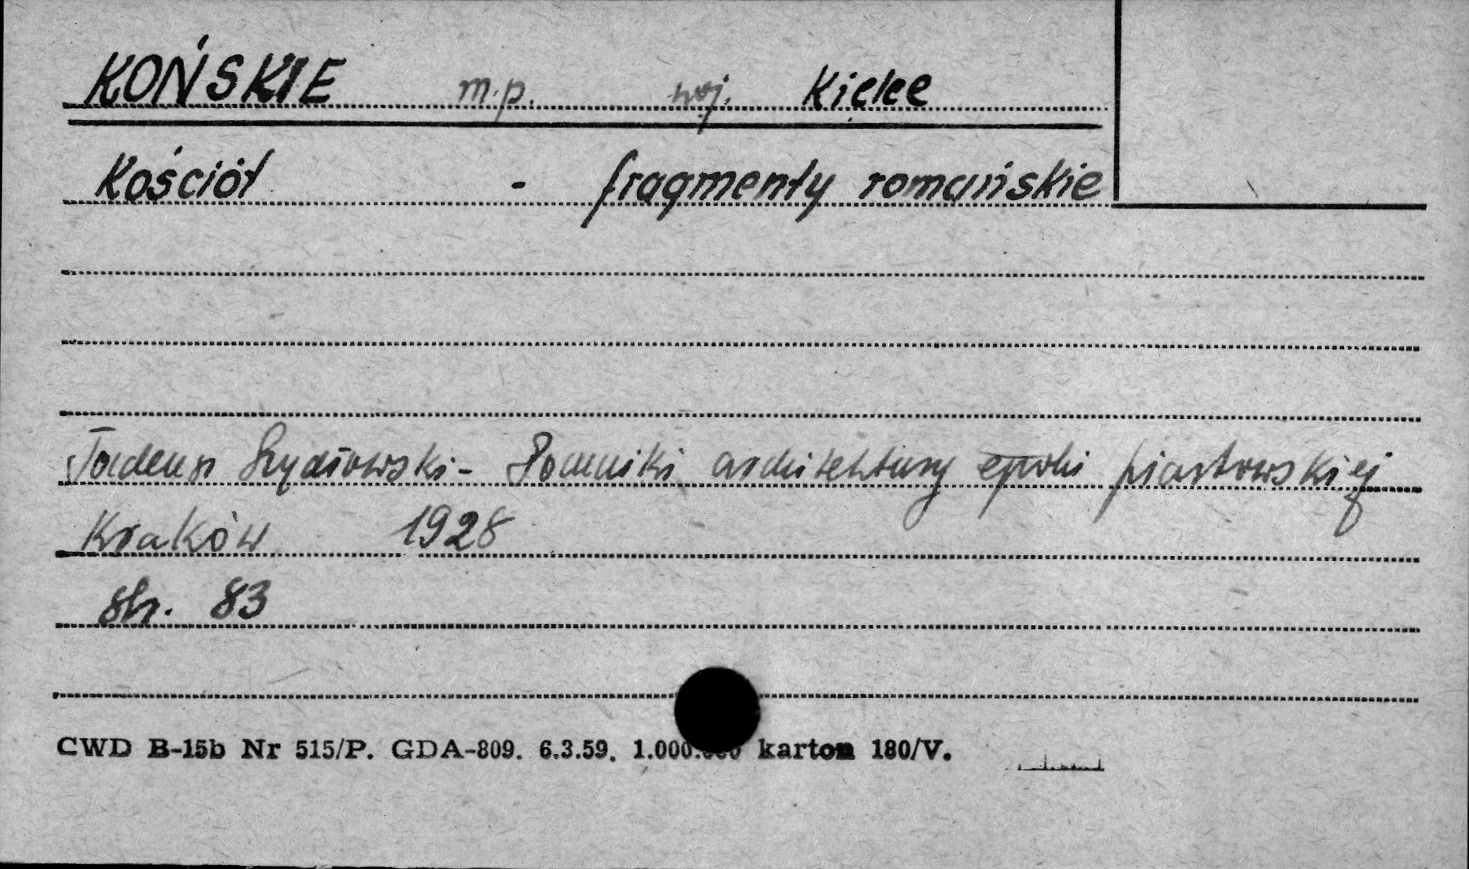 KOŃSKIE m.p. woj. Kielce
Kościół - fragmenty romańskie
Tadeusz Szydłowski - Pomniki architektury epoki piastowskiej
Kraków 1928
str. 83
CWD B-15b Nr 515/P. GDA-809. 6.3.59. 1.000.000 karton 180/V.